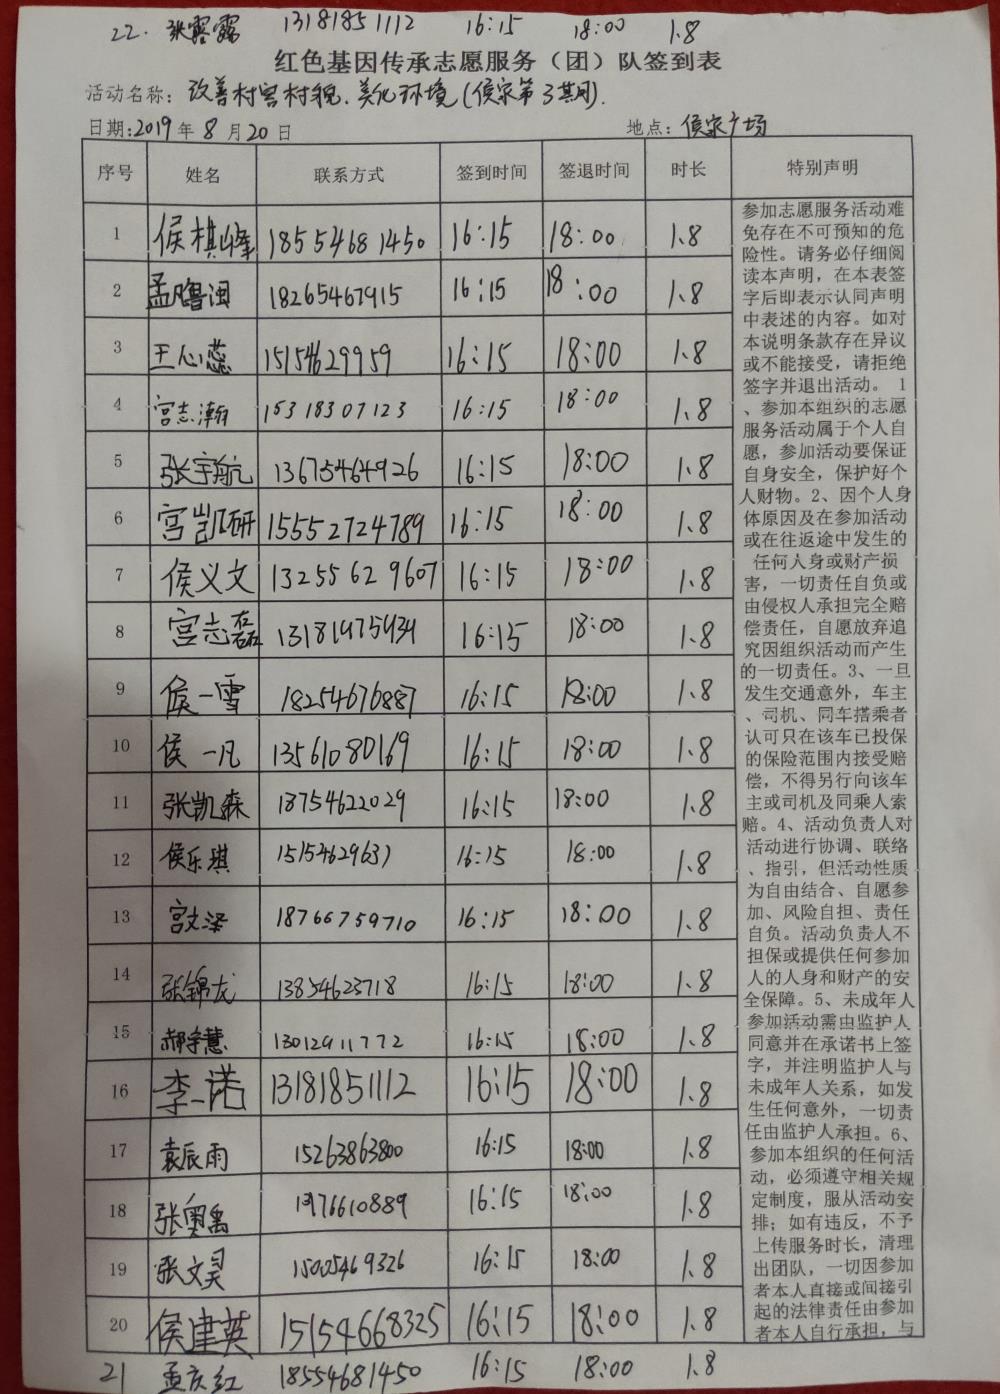 22. 张露露 13181851112 16:15 18:00 1.8
红色基因传承志愿服务（团）队签到表
活动名称：改善村容村貌、美化环境(侯家第3期).
日期:2019年8月20日 地点：侯家广场
序号 姓名 联系方式 签到时间 签退时间 时长 特别声明
1 侯棋峰 18554681450 16:15 18:00 1.8
2 孟鲁闽 18265467915 16:15 18:00 1.8
3 王心蕊 15154629959 16:15 18:00 1.8
4 宫志瀚 15318307123 16:15 18:00 1.8
5 张宇航 13675464926 16:15 18:00 1.8
6 宫凯研 15552724789 16:15 18:00 1.8
7 侯义文 13255629607 16:15 18:00 1.8
8 宫志磊 13181975934 16:15 18:00 1.8
9 侯一雪 18254676887 16:15 18:00 1.8
10 侯一凡 13561080169 16:15 18:00 1.8
11 张凯森 18754622029 16:15 18:00 1.8
12 侯乐琪 15154629631 16:15 18:00 1.8
13 宫文泽 18766759710 16:15 18:00 1.8
14 张锦龙 13854623718 16:15 18:00 1.8
15 郝宇慧 13012911772 16:15 18:00 1.8
16 李一诺 13181851112 16:15 18:00 1.8
17 袁辰雨 15263863800 16:15 18:00 1.8
18 张奥禹 16:15 18:00 1.8
19 张文昊 15005469326 16:15 18:00 1.8
20 侯建英 15154668325 16:15 18:00 1.8
21 孟庆红 18554681450 16:15 18:00 1.8
参加志愿服务活动难
免存在不可预知的危
险性。请务必仔细阅
读本声明，在本表签
字后即表示认同声明
中表述的内容。如对
本说明条款存在异议
或不能接受，请拒绝
签字并退出活动。 1
、参加本组织的志愿
服务活动属于个人自
愿，参加活动要保证
自身安全，保护好个
人财物。2、因个人身
体原因及在参加活动
或在往返途中发生的
任何人身或财产损
害，一切责任自负或
由侵权人承担完全赔
偿责任，自愿放弃追
究因组织活动而产生
的一切责任。3、一旦
发生交通意外，车主
、司机、同车搭乘者
认可只在该车已投保
的保险范围内接受赔
偿，不得另行向该车
主或司机及同乘人索
赔。4、活动负责人对
活动进行协调、联络
、指引，但活动性质
为自由结合、自愿参
加、风险自担、责任
自负。活动负责人不
担保或提供任何参加
人的人身和财产的安
全保障。5、未成年人
参加活动需由监护人
同意并在承诺书上签
字，并注明监护人与
未成年人关系，如发
生任何意外，一切责
任由监护人承担。6、
参加本组织的任何活
动，必须遵守相关规
定制度，服从活动安
排；如有违反，不予
上传服务时长，清理
出团队，一切因参加
者本人直接或间接引
起的法律责任由参加
者本人自行承担，与